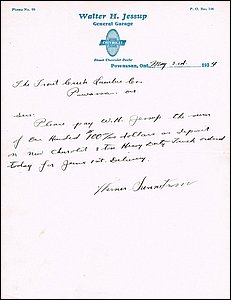 Phone No. 95
P. O. Box 146
Walter H. Jessup
General Garage
CHEVROLET
Direct Chevrolet Dealer
Powassan, Ont., May 2nd 1934
The Trout Creek Lumber Co.
Powassan Ont
Sirs:
Please pay W.H. Jessup the sum
of One Hundred $100 00/xx dollars as deposit
on new Chevrolet 2 ton Heavy Duty Truck ordered
today for June 1st Delivery.
Werner